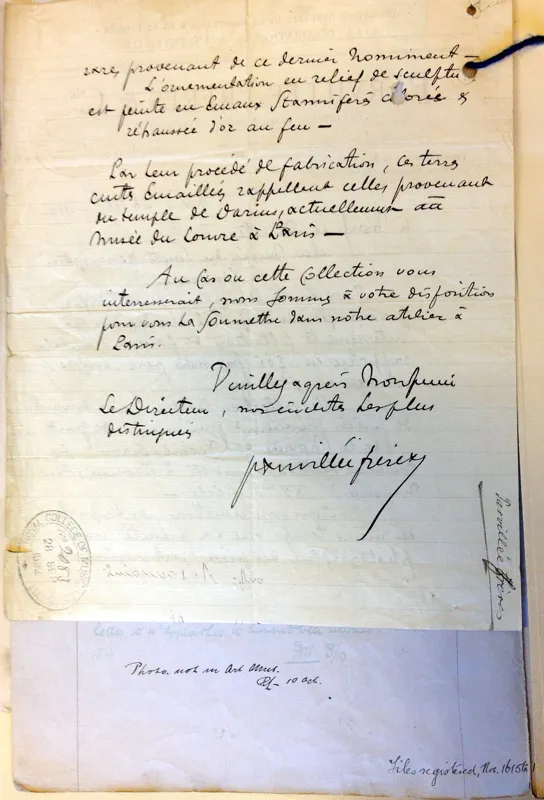 rares provenant de ce dernier Monument —
L'ornementation en relief de sculptu
est peinte en Emaux Stannifères colorés &
réhaussée d'or au feu —
Par leur procédé de fabrication, ces terres
cuites Emaillées rappellent celles provenant
du temple de Darius, actuellement au
Musée du Louvre à Paris —
Au Cas ou cette Collection vous
interresserait, nous sommes à votre disposition
pour vous la Soumettre dans notre atelier à
Paris.
Veuillez agréer Monsieur
Le Directeur, nos Les plus
distingués
Parvillée frères
Parvillée frères
2987
28
Photo. not in Art Mus.
10 Oct.
Files registered, Nos.